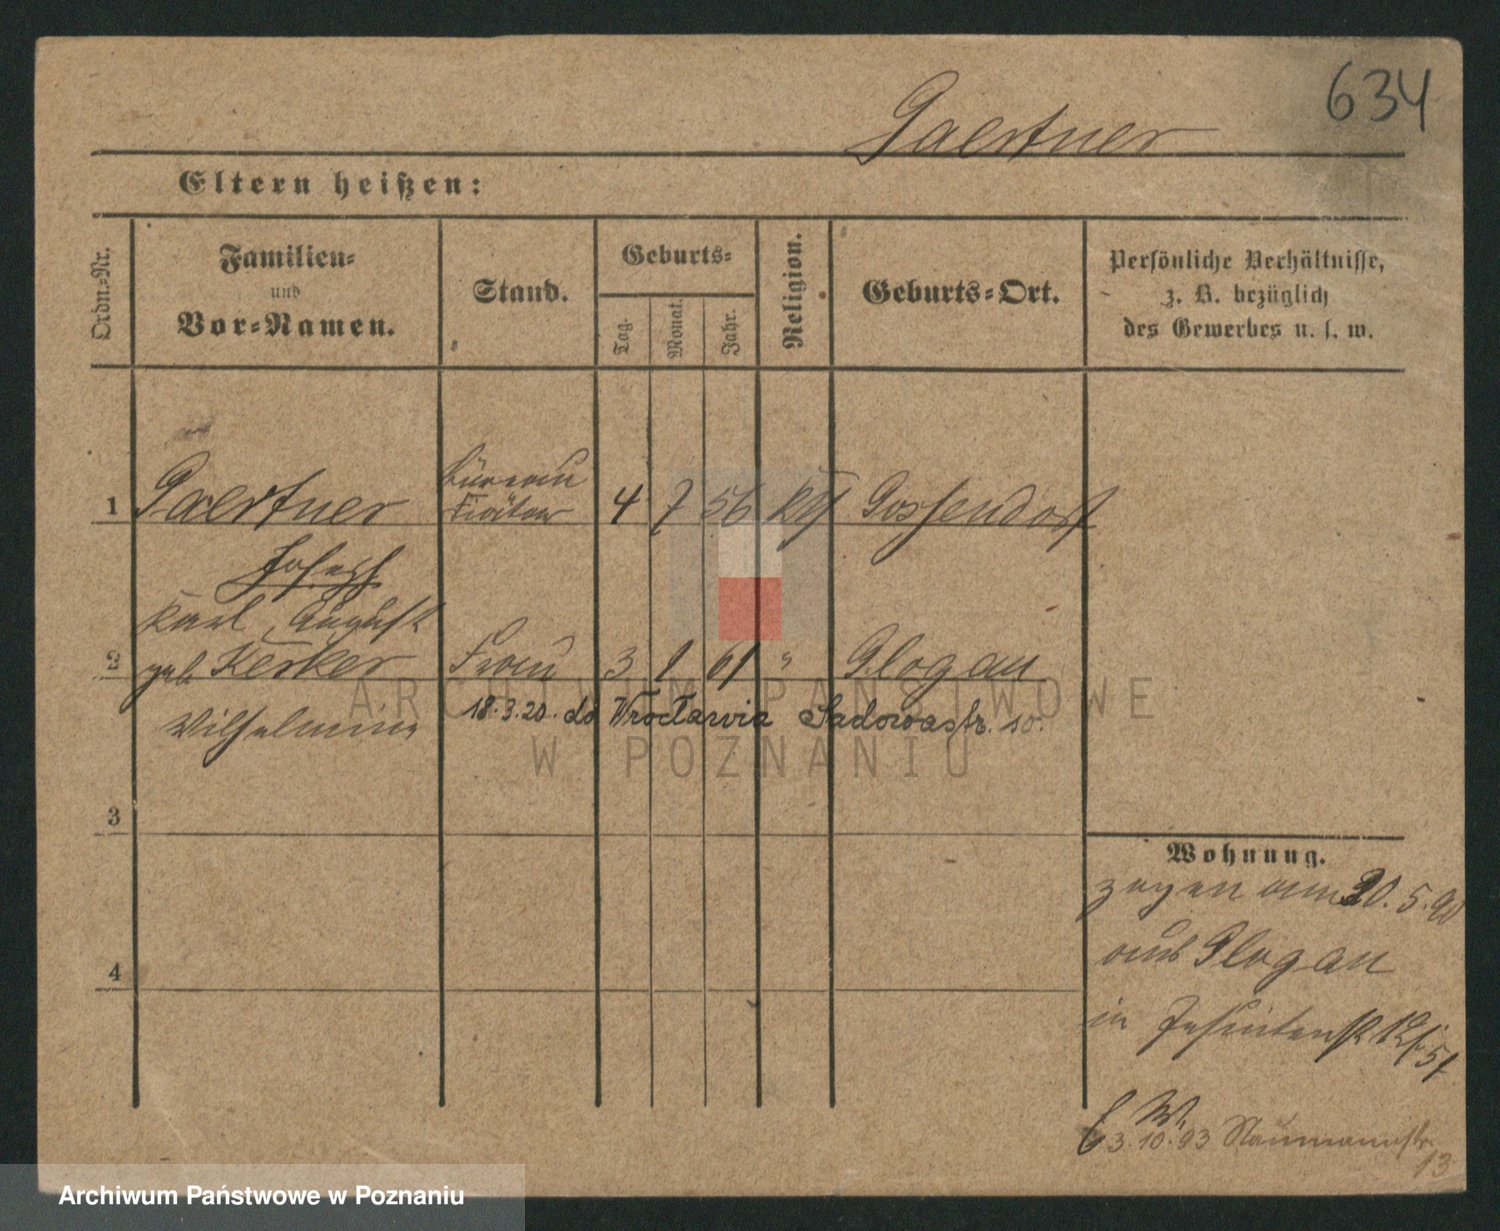 634
Gaertner
Eltern heißen:
Ordn.-Nr.
Familien-
und
Vor-Namen.
Stand.
Geburts-
Tag.
Monat.
Jahr.
Religion.
Geburts-Ort.
Persönliche Verhältnisse,
z. B. bezüglich
des Gewerbes u. s. w.
1 Gaertner Büreau Diätar 4 7 56 kth Gossendorf
Joseph
Karl August
2 geb. Kerker Frau 3 1 61 " Glogau
Wilhelmine 18.3.20. do Wrocławia Sadowastr. 10.
3
4
Wohnung.
zogen am 20.5.90
aus Glogau
in Jesuitenstr
3.10.93 Naumannstr.
13
ARCHIWUM PAŃSTWOWE
W POZNANIU
Archiwum Państwowe w Poznaniu